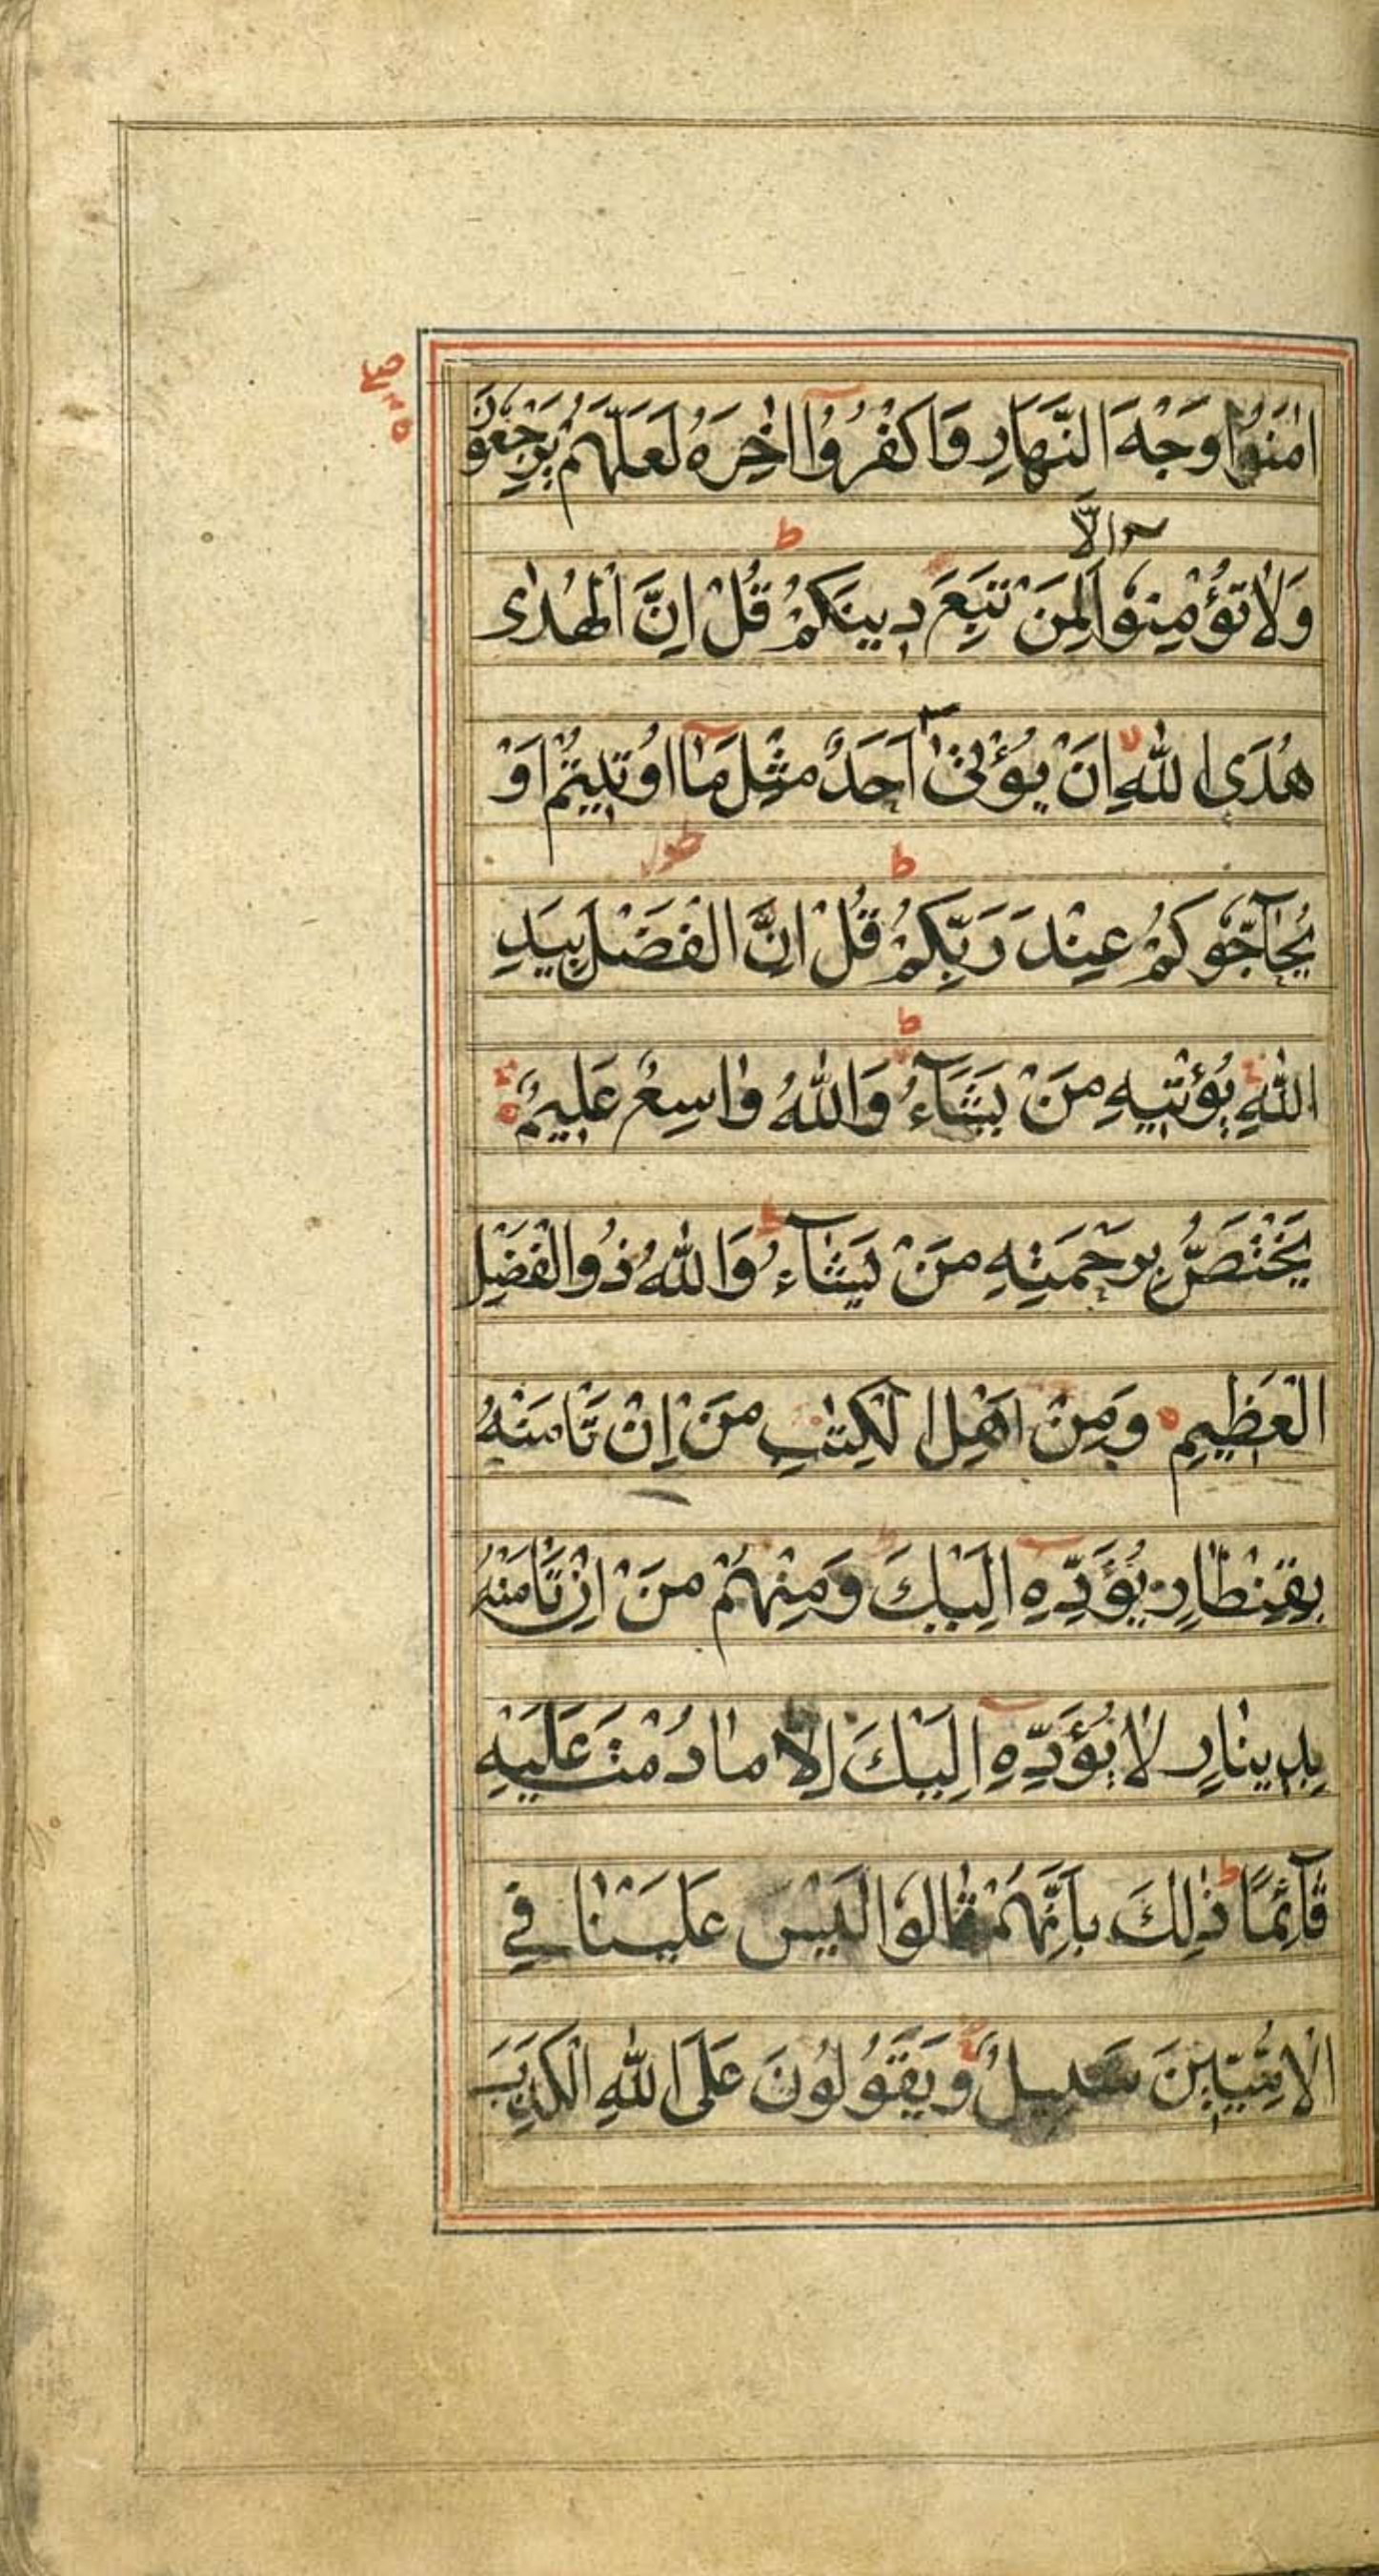 اٰمَنُوْا وَجْهَ النَّهَارِ وَاكْفُرُوْا اٰخِرَهُ لَعَلَّهُمْ يَرْجِعُوْنَ
اِلَّا
وَلَا تُؤْمِنُوْا لِمَنْ تَبِعَ دِينَكُمْ ط قُلْ اِنَّ الْهُدٰى
هُدَى اللّٰهِ لا اَنْ يُؤْتٰى اَحَدٌ مِثْلَ مَا اُوتِيتُمْ اَوْ
يُحَاجُّوكُمْ عِنْدَ رَبِّكُمْ ط قُلْ اِنَّ الْفَضْلَ بِيَدِ
اللّٰهِ يُؤْتِيهِ مَنْ يَشَآءُ ط وَاللّٰهُ وٰاسِعٌ عَلِيمٌ
يَخْتَصُّ بِرَحْمَتِهِ مَنْ يَشَآءُ ط وَاللّٰهُ ذُوالْفَضْلِ
الْعَظِيمِ وَمِنْ اَهْلِ الْكِتٰبِ مَنْ اِنْ تَاْمَنْهُ
بِقِنْطَارٍ يُؤَدِّهِ اِلَيْكَ وَمِنْهُمْ مَنْ اِنْ تَاْمَنْهُ
بِدِينَارٍ لَا يُؤَدِّهِ اِلَيْكَ اِلَّا مٰا دُمْتَ عَلَيْهِ
قَآئِمًا ط ذٰلِكَ بِاَنَّهُمْ قٰالُوا لَيْسَ عَلَيْنٰا فِي
الْاُمِّيّٖنَ سَبِيلٌ وَيَقُولُونَ عَلَى اللّٰهِ الْكَذِبَ